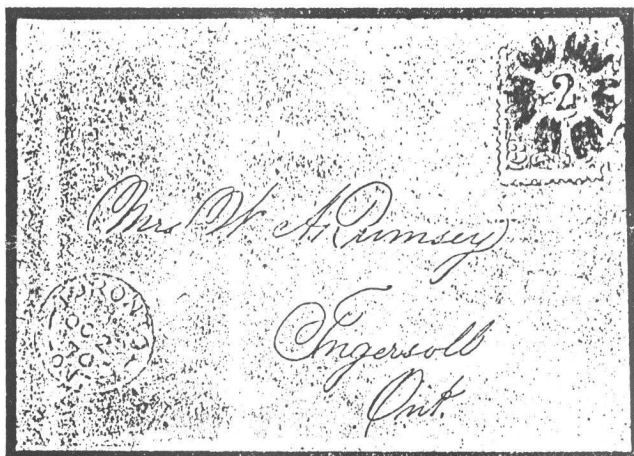 2
Mrs W A Rumsey
Ingersoll
Ont.
TORONTO
OC 2
70
ONT